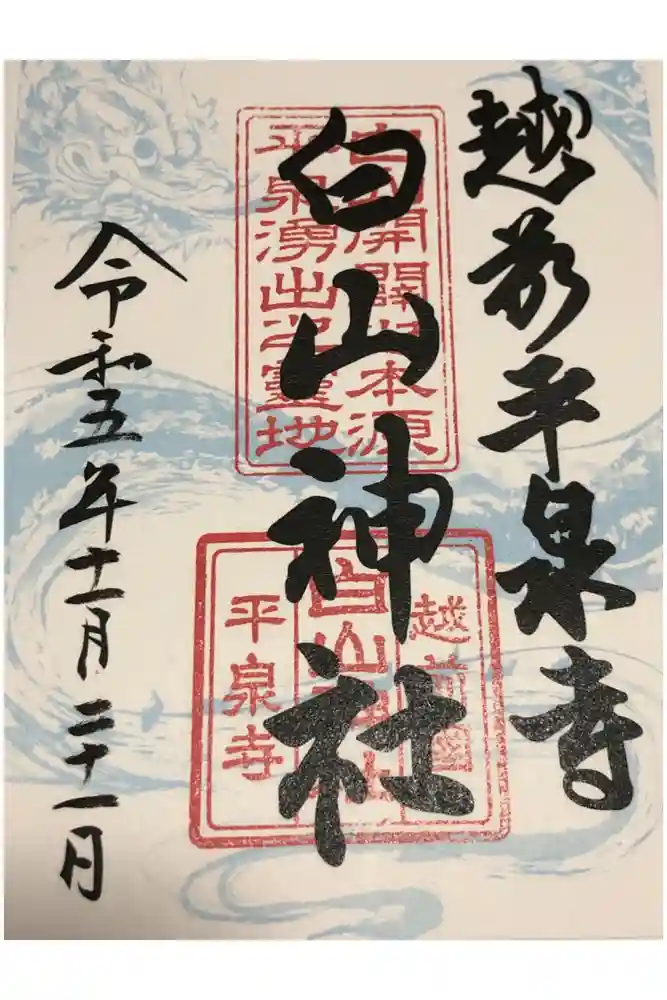 越前平泉寺
白山神社
令和五年十一月二十一日
白山開闢之本源
平泉湧出之靈地
越前國
白山神社
平泉寺